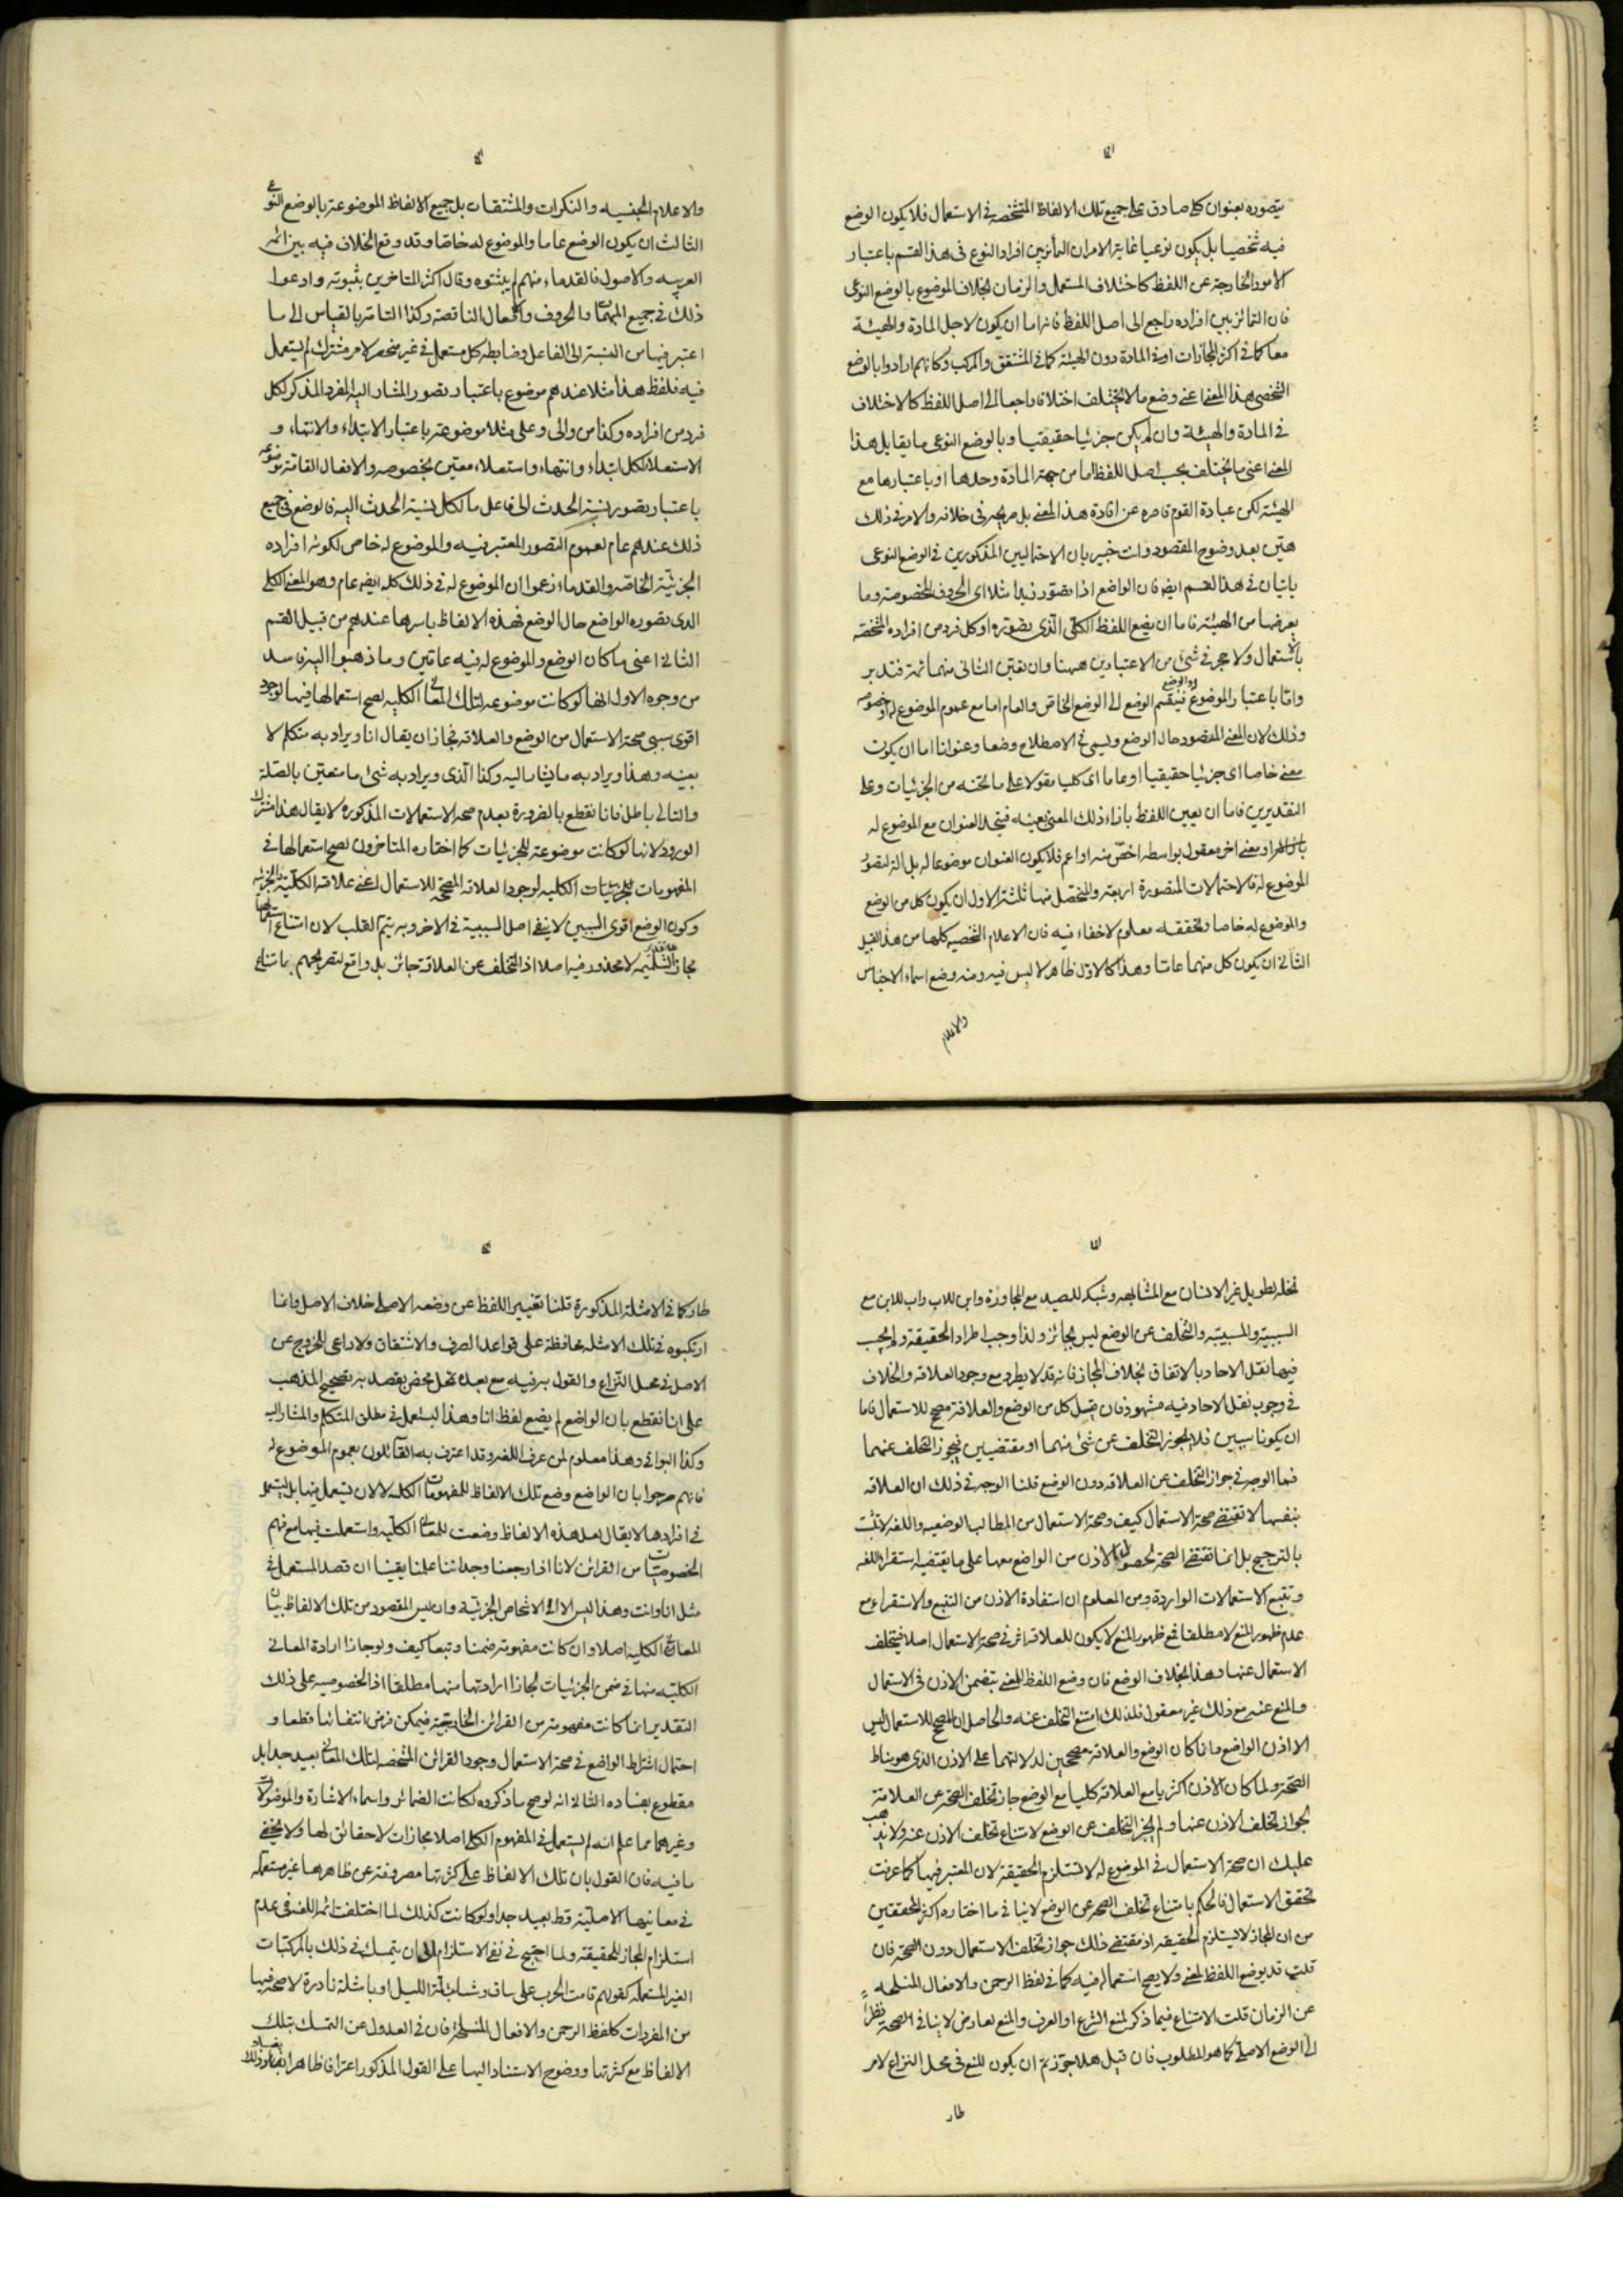 يتصوره بعنوان كلى صادق على جميع تلك الالفاظ المتشخصه فى الاستعمال فلا يكون الوضع
فيه شخصيا بل يكون نوعيا غاية الامر ان التمايز بين افراد النوع فى هذا القسم باعتبار
الامور الخارجة عن اللفظ كاختلاف المستعمل والزمان بخلاف الموضوع بالوضع النوعى
فان التمايز بين افراده راجع الى اصل اللفظ فانه اما ان يكون لاجل المادة والهيئة
معا كما فى اكثر المجازات او فى المادة دون الهيئة كما فى المشتق والمركب وكانهم ارادوا بالوضع
الشخصى هذا المعنى اعنى وضع ما لا يختلف اختلافا راجعا الى اصل اللفظ كالاختلاف
فى المادة والهيئة وان لم يكن جزئيا حقيقيا وبالوضع النوعى ما يقابل هذا
المعنى اعنى ما يختلف بحسب اصل اللفظ اما من جهة المادة وحدها او باعتبارها مع
الهيئة لكن عبارة القوم قاصره عن افادة هذا المعنى بل صريحه فى خلافه والامر فى ذلك
هين بعد وضوح المقصود وانت خبير بان الاحتمالين المذكورين فى الوضع النوعى
ياتيان فى هذا القسم ايضا فان الواضع اذا تصور زيدا مثلا اى الحروف المخصوصة وما
يعرضها من الهيئة فاما ان يضع اللفظ الكلى الذى تصوره او كل فرد من افراده المتشخصه
بالاستعمال ولا حجر فى شئ من الاعتبارين ههنا وان تعين الثانى منهما ثمة فتدبر
واما باعتبار الموضوع له والوضع فينقسم الوضع الى الوضع الخاص والعام اما مع عموم الموضوع له او خصوصه
وذلك لان المعنى المقصود حال الوضع ويسمى فى الاصطلاح وضعا وعنوانا اما ان يكون
معنى خاصا اى جزئيا حقيقيا او عاما اى كليا مقولا على ما تحته من الجزئيات وعلى
التقديرين فاما ان يعين اللفظ بازاء ذلك المعنى بعينه فيتحد العنوان مع الموضوع له
او معنى اخر معقول بواسطه اخص منه او اعم فلا يكون العنوان موضوعا له بل الة لتصور
الموضوع له فالاحتمالات المتصورة اربعة والمتحصل منها ثلثة الاول ان يكون كل من الوضع
والموضوع له خاصا وتحققه معلوم لا خفاء فيه فان الاعلام الشخصيه كلها من هذا القبيل
الثانى ان يكون كل منهما عاما وهذا كالاول ظاهر لا لبس فيه ومنه وضع اسماء الاجناس
والاعلام
والاعلام الجنسيه والنكرات والمشتقات بل جميع الالفاظ الموضوعة بالوضع النوعى
الثالث ان يكون الوضع عاما والموضوع له خاصا وقد وقع الخلاف فيه بين ائمة
العربيه والاصول فالقدماء منهم لم يثبتوه وقال اكثر المتاخرين بثبوته وادعوا
ذلك فى جميع المبهمات والحروف والافعال الناقصة وكذا التامة بالقياس الى ما
اعتبر فيها من النسبة الى الفاعل وضابطه كل مستعمل فى غير منحصر لامر مشترك لم يستعمل
فيه فلفظ هذا مثلا عندهم موضوع باعتبار تصور المشار اليه المفرد المذكر لكل
فرد من افراده وكذا من والى وعلى مثلا موضوعة باعتبار الابتداء والانتهاء و
الاستعلاء لكل ابتداء وانتهاء واستعلاء معين بخصوصه والافعال التامة موضوعة
باعتبار تصور نسبة الحدث الى فاعل ما لكل نسبة الحدث اليه فالوضع فى جميع
ذلك عندهم عام لعموم التصور المعتبر فيه والموضوع له خاص لكونه افراده
الجزئية الخاصة والقدماء زعموا ان الموضوع له فى ذلك كله ايضا عام وهو المعنى الكلى
الذى تصوره الواضع حال الوضع فهذه الالفاظ باسرها عندهم من قبيل القسم
الثانى اعنى ما كان الوضع والموضوع له فيه عامين وما ذهبوا اليه فاسد
من وجوه الاول انها لو كانت موضوعة لتلك المعانى الكليه لصح استعمالها فيها لوجود
اقوى سببى صحة الاستعمال من الوضع والعلاقة فجاز ان يقال انا ويراد به متكلم لا
بعينه وهذا ويراد به ما يشار اليه وكذا الذى ويراد به شئ ما متعين بالصلة
والتالى باطل فانا نقطع بالضرورة بعدم صحة الاستعمالات المذكورة لا يقال هذا مشترك
الورود لانها لو كانت موضوعة للجزئيات كما اختاره المتاخرون لصح استعمالها فى
المفهومات الكليه لوجود العلاقة المصححة للاستعمال اعنى علاقة الكلية والجزئية
وكون الوضع اقوى السببين لا ينفى اصل السببية فى الاخر وبه يتم القلب لان امتناع استعمالها
مجازا لا محذور فيه اصلا اذ التخلف عن العلاقة جائز بل واقع لتصريحهم بامتناع
نخلة لطويل غير الانسان مع المشابهه وشبكه للصيد مع المجاورة وابن للاب واب للابن مع
السببية والمسببية والتخلف عن الوضع ليس بجائز ولذا وجب اطراد الحقيقة ولم يجب
فيها نقل الاحاد بالاتفاق بخلاف المجاز فانه قد لا يطرد مع وجود العلاقة والخلاف
فى وجوب نقل الاحاد فيه مشهود فان قيل كل من الوضع والعلاقة مصحح للاستعمال فاما
ان يكونا سببين فلا يجوز التخلف عن شئ منهما او مقتضيين فيجوز التخلف عنهما
فما الوجه فى جواز التخلف عن العلاقة دون الوضع قلنا الوجه فى ذلك ان العلاقة
بنفسها لا تقتضى صحة الاستعمال كيف وصحة الاستعمال من المطالب الوضعيه واللغة لا تثبت
بالترجيح بل انما تقتضى الصحة لحصول الاذن من الواضع معها على ما يقتضيه استقراء اللغه
وتتبع الاستعمالات الواردة ومن المعلوم ان استفادة الاذن من التتبع والاستقراء مع
عدم ظهور المنع لا مطلقا فمع ظهور المنع لا يكون للعلاقة اثر فى صحة الاستعمال اصلا فيتخلف
الاستعمال عنها وهذا بخلاف الوضع فان وضع اللفظ للمعنى يتضمن الاذن فى الاستعمال
والمنع عنه مع ذلك غير معقول فلذلك امتنع التخلف عنه والحاصل ان المصحح للاستعمال ليس
الا اذن الواضع وانما كان الوضع والعلاقة مصححين لدلالتهما على الاذن الذى هو مناط
الصحة ولما كان الاذن اكثريا مع العلاقة كليا مع الوضع جاز تخلف الصحة عن العلاقة
لجواز تخلف الاذن عنها ولم يجز التخلف عن الوضع لامتناع تخلف الاذن عنه ولا يذهب
عليك ان صحة الاستعمال فى الموضوع له لا تستلزم الحقيقة لان المعتبر فيها كما عرفت
تحقق الاستعمال فالحكم بامتناع تخلف الصحة عن الوضع لا ينافى ما اختاره اكثر المحققين
من ان المجاز لا يستلزم الحقيقة اذ مقتضى ذلك جواز تخلف الاستعمال دون الصحة فان
قلت قد يوضع اللفظ لمعنى ولا يصح استعماله فيه كما فى لفظ الرحمن والافعال المنسلخه
عن الزمان قلت الامتناع فيما ذكر لمنع الشرع او العرف والمنع لعارض لا ينافى الصحة نظرا
الى الوضع الاصلى كما هو المطلوب فان قيل هلا جوزتم ان يكون المنع فى محل النزاع لامر
طار
طار كما فى الامثلة المذكورة قلنا تغيير اللفظ عن وضعه الاصلى خلاف الاصل وانما
ارتكبوه فى تلك الامثله محافظة على قواعد الصرف والاشتقاق ولا داعى للخروج عن
الاصل فى محل النزاع والقول به فيه مع بعده تمحل محض يقصد به تصحيح المذهب
على انا نقطع بان الواضع لم يضع لفظ انا وهذا ليستعمل فى مطلق المتكلم والمشار اليه
وكذا البواقى وهذا معلوم لمن عرف اللغه وقد اعترف به القائلون بعموم الموضوع له
فانهم صرحوا بان الواضع وضع تلك الالفاظ للمفهومات الكليه لا لان يستعمل فيها بل ليستعمل
فى افرادها لا يقال لعل هذه الالفاظ وضعت للمعانى الكليه واستعملت فيها مع فهم
الخصوصيات من القرائن لانا اذا راجعنا وجداننا علمنا يقينا ان قصد المستعمل فى
مثل انا وانت وهذا ليس الا الى الاشخاص الجزئية وان ليس المقصود من تلك الالفاظ بيان
المعانى الكليه اصلا وان كانت مفهومة ضمنا وتبعا كيف ولو جاز ارادة المعانى
الكليه منها فى ضمن الجزئيات لجاز ارادتها منها مطلقا اذ الخصوصيه على ذلك
التقدير انما كانت مفهومة من القرائن الخارجية فيمكن فرض انتفائها قطعا و
احتمال اشتراط الواضع فى صحة الاستعمال وجود القرائن المشخصه لتلك المعانى بعيد جدا بل
مقطوع بفساده الثانى انه لو صح ما ذكروه لكانت الضمائر واسماء الاشارة والموصولات
وغيرها مما علم انه لم يستعمل فى المفهوم الكلى اصلا مجازات لا حقائق لها ولا يخفى
ما فيه فان القول بان تلك الالفاظ على كثرتها مصروفة عن ظاهرها غير مستعملة
فى معانيها الاصلية قط بعيد جدا ولو كانت كذلك لما اختلفت ائمة اللغة فى عدم
استلزام المجاز للحقيقة ولما احتيج فى نفى الاستلزام الى ان يتمسك فى ذلك بالمركبات
الغير المستعملة كقولهم قامت الحرب على ساق وشابت لمة الليل او بامثلة نادرة لا صحة فيها
من المفردات كلفظ الرحمن والافعال المنسلخة فان فى العدول عن التمسك بتلك
الالفاظ مع كثرتها ووضوح الاستناد اليها على القول المذكور اعترافا ظاهرا بفساد ذلك